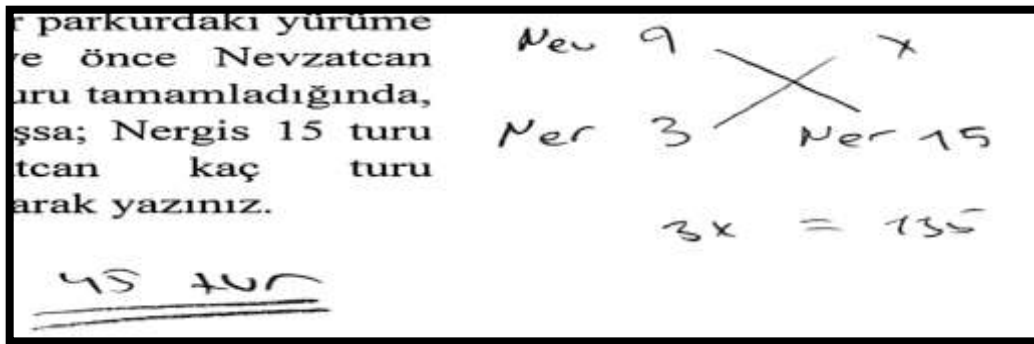 r parkurdaki yürüme
ve önce Nevzatcan
uru tamamladığında,
şsa; Nergis 15 turu
tcan kaç turu
arak yazınız.
45 tur
Nev 9 x
Ner 3 Ner 15
3x = 135